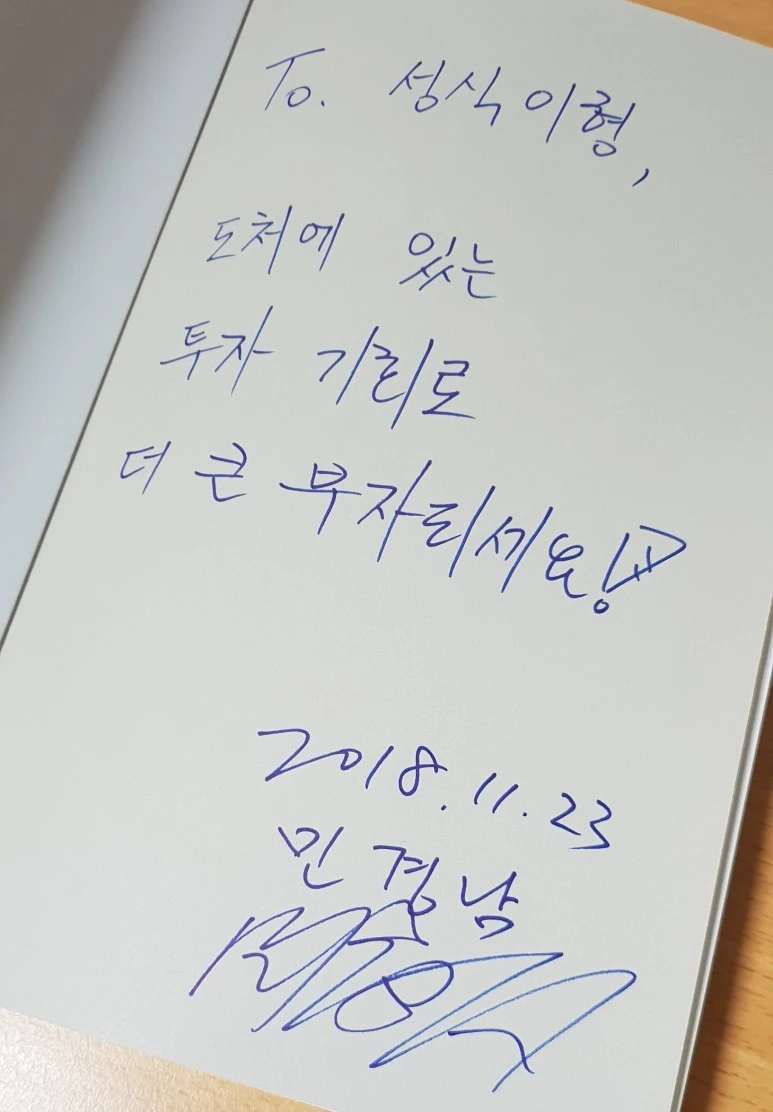 To. 성식이형,
도처에 있는
투자 기회로
더 큰 부자되세요!
2018.11.23
민경남